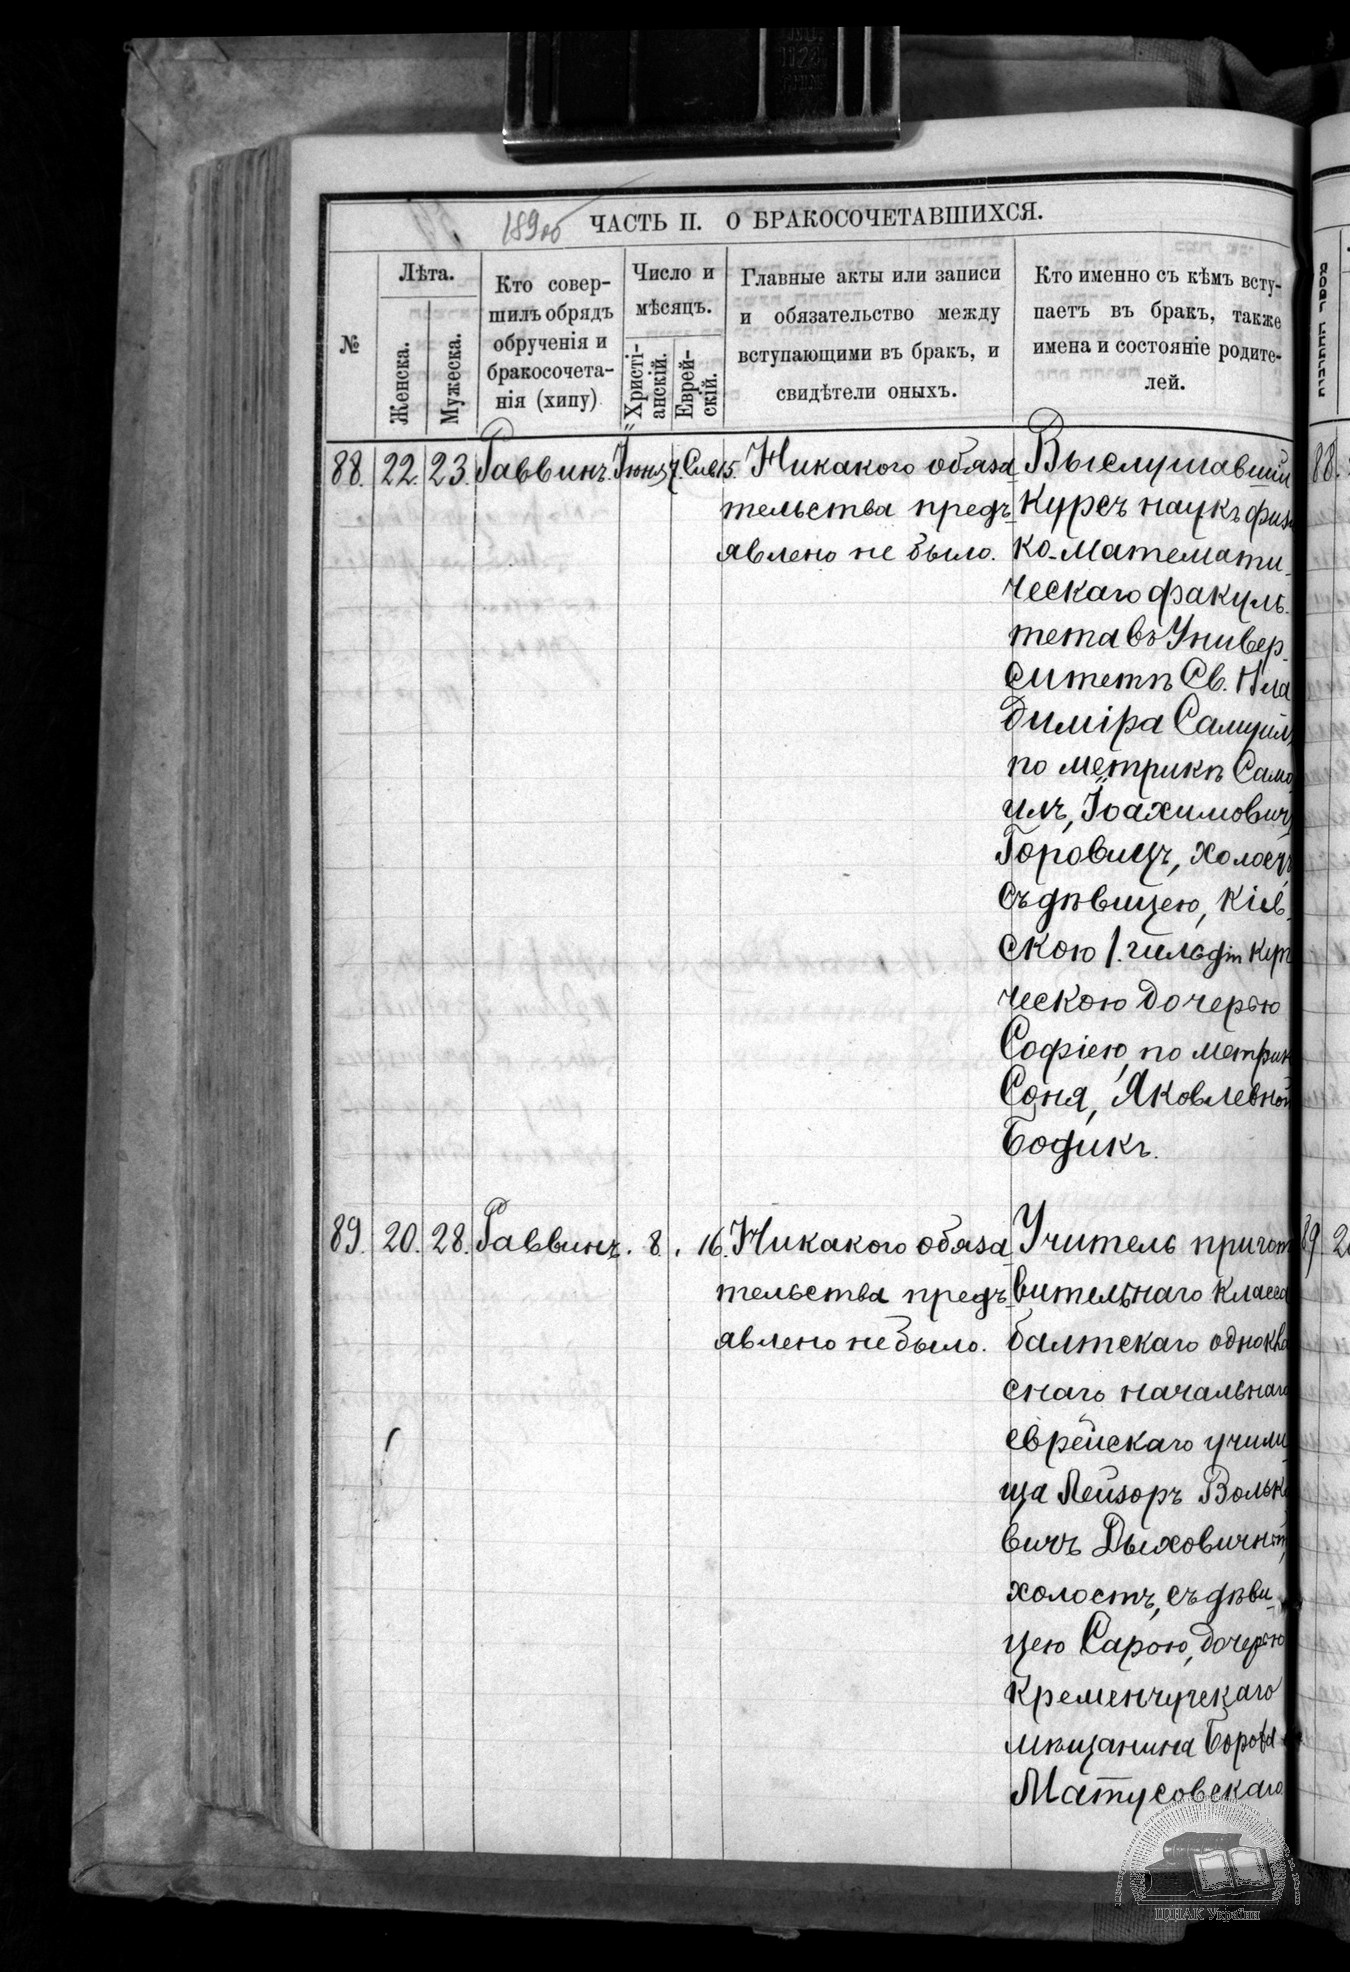 189об ЧАСТЬ II. О БРАКОСОЧЕТАВШИХСЯ.
№
Лѣта.
Женска.
Мужеска.
Кто совер-
шилъ обрядъ
обрученія и
бракосочета-
нія (хипу)
Число и
мѣсяцъ.
Христі-
анскій.
Еврей-
скій.
Главные акты или записи
и обязательство между
вступающими въ бракъ, и
свидѣтели оныхъ.
Кто именно съ кѣмъ всту-
паетъ въ бракъ, также
имена и состояніе родите-
лей.
88. 22. 23. Раввинъ. Іюня 7. Сив 15.
Никакого обяза-
тельства предъ-
явлено не было.
Выслушавшій
курсъ наукъ физи
ко-математи-
ческаго факуль-
тета въ Универ-
ситетѣ Св. Вла
диміра Самуилъ,
по метрикѣ Само
илъ, Іоахимовичъ
Горовицъ, холостъ
съ дѣвицею, Кіев-
скою 1. гильдіи купе
ческою дочерью
Софіею, по метрик
Соня, Яковлевной
Бодикъ.
89. 20. 28. Раввинъ. 8. 16.
Никакого обяза-
тельства предъ-
явлено не было.
Учитель пригото
вительнаго класса
балтскаго однокла
снаго начальнаго
еврейскаго учили
ща Лейзоръ Волько
вичъ Дыховичный,
холостъ, съ дѣви-
цею Сарою, дочерью
Кременчугскаго
мѣщанина Бороха
Матусовскаго.
88.
89 2
ЦДІАК України